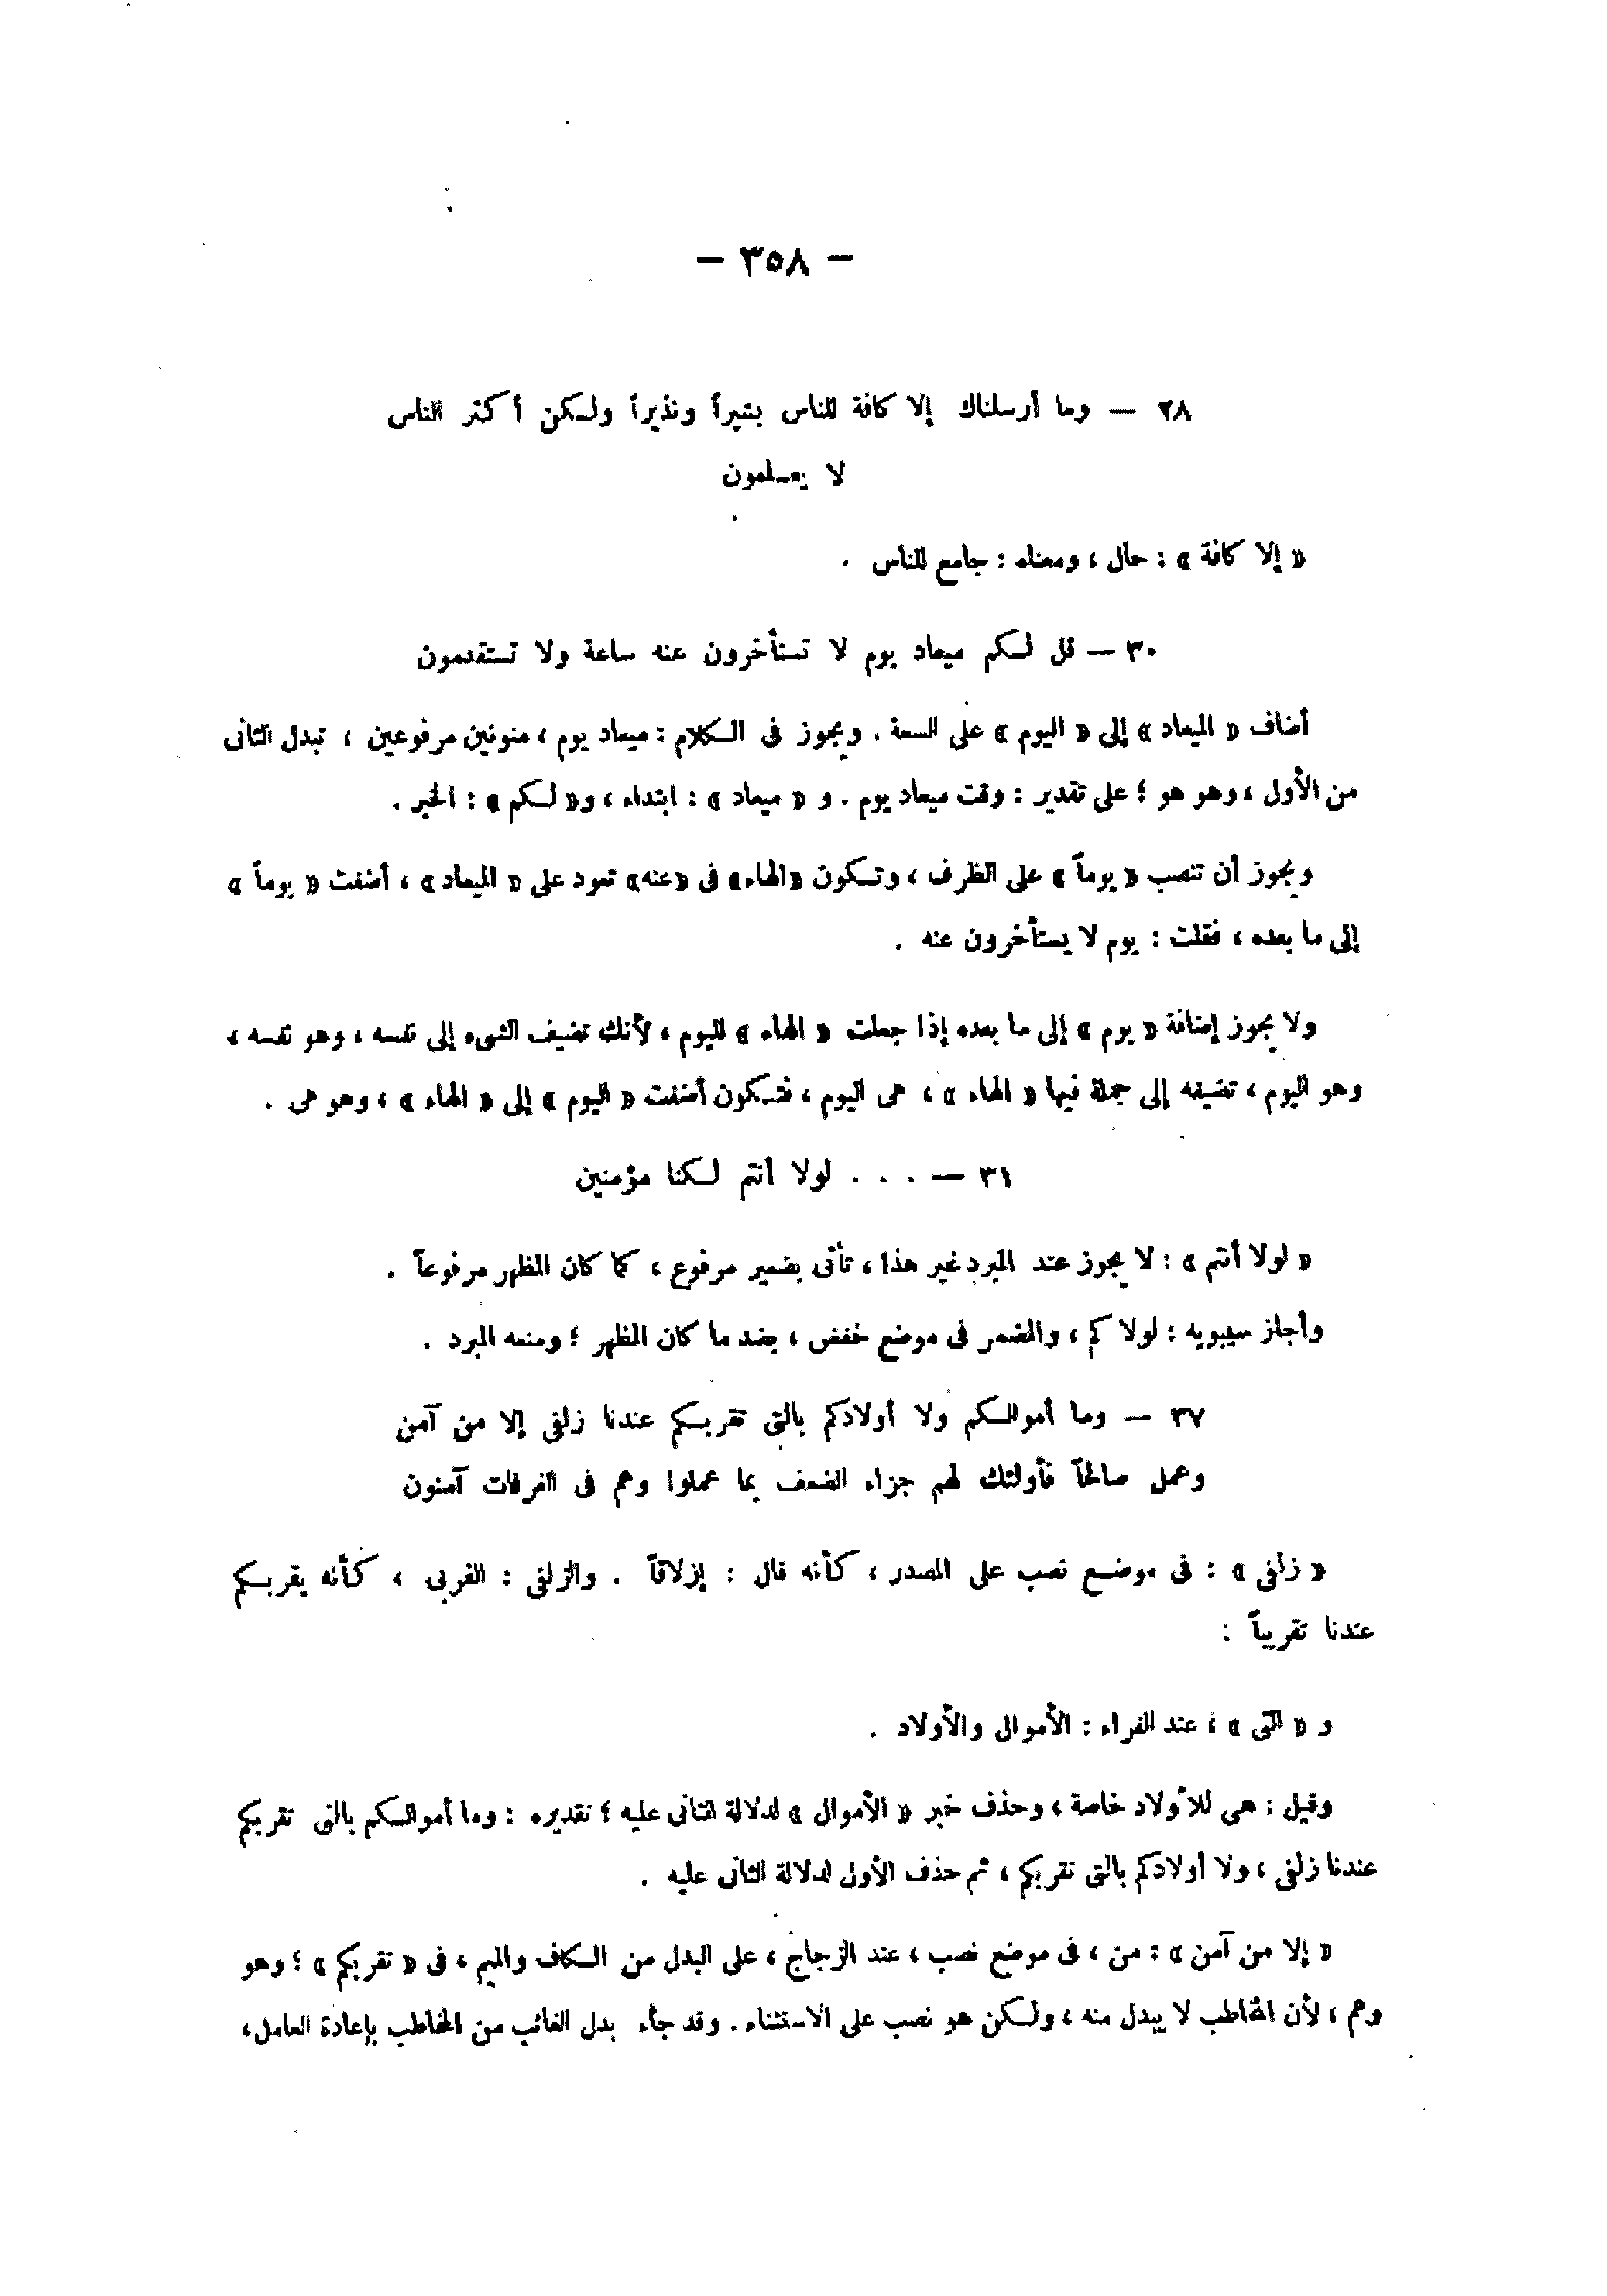 — ٣٥٨ —
٢٨ — وما أرسلناك إلا كافة للناس بشيراً ونذيراً ولكن أكثر الناس
لا يعلمون
« إلا كافة » : حال ، ومعناه : جامع للناس .
٣٠ — قل لكم ميعاد يوم لا تستأخرون عنه ساعة ولا تستقدمون
أضاف « الميعاد » إلى « اليوم » على السعة . ويجوز فى الكلام : ميعاد يوم ، منونين مرفوعين ، تبدل الثانى
من الأول ، وهو هو ؛ على تقدير : وقت ميعاد يوم . و « ميعاد » : ابتداء ، و« لكم » : الخبر .
ويجوز أن تنصب « يوماً » على الظرف ، وتكون «الهاء» فى «عنه» تعود على « الميعاد» ، أضفت « يوماً »
إلى ما بعده ، فقلت : يوم لا يستأخرون عنه .
ولا يجوز إضافة « يوم » إلى ما بعده إذا جعلت « الهاء » لليوم ، لأنك تضيف الشىء إلى نفسه ، وهو نفسه ،
وهو اليوم ، تضيفه إلى جملة فيها « الهاء » ، هى اليوم ، فتكون أضفت « اليوم » إلى « الهاء » ، وهو هى .
٣١ — . . . لولا أنتم لكنا مؤمنين
« لولا أنتم » : لا يجوز عند المبرد غير هذا ، تأتى بضمير مرفوع ، كما كان المظهر مرفوعاً .
وأجاز سيبويه : لولاكم ، والمضمر فى موضع خفض ، بضد ما كان المظهر ؛ ومنعه المبرد .
٣٧ — وما أموالكم ولا أولادكم بالتى تقربكم عندنا زلفى إلا من آمن
وعمل صالحاً فأولئك لهم جزاء الضعف بما عملوا وهم فى الغرفات آمنون
« زلفى » : فى موضع نصب على المصدر ، كأنه قال : إزلاقاً . والزلفى : القربى ، كأنه يقربكم
عندنا تقريباً :
و « التى » ، عند الفراء : الأموال والأولاد .
وقيل : هى للأولاد خاصة ، وحذف خبر « الأموال » لدلالة الثانى عليه ؛ تقديره : وما أموالكم بالتى تقربكم
عندنا زلفى ، ولا أولادكم بالتى تقربكم ، ثم حذف الأول لدلالة الثانى عليه .
« إلا من آمن » : من ، فى موضع نصب ، عند الزجاج ، على البدل من الكاف والميم ، فى « تقربكم » ؛ وهو
وهم ، لأن المخاطب لا يبدل منه ، ولكن هو نصب على الاستثناء . وقد جاء بدل الغائب من المخاطب بإعادة العامل ،